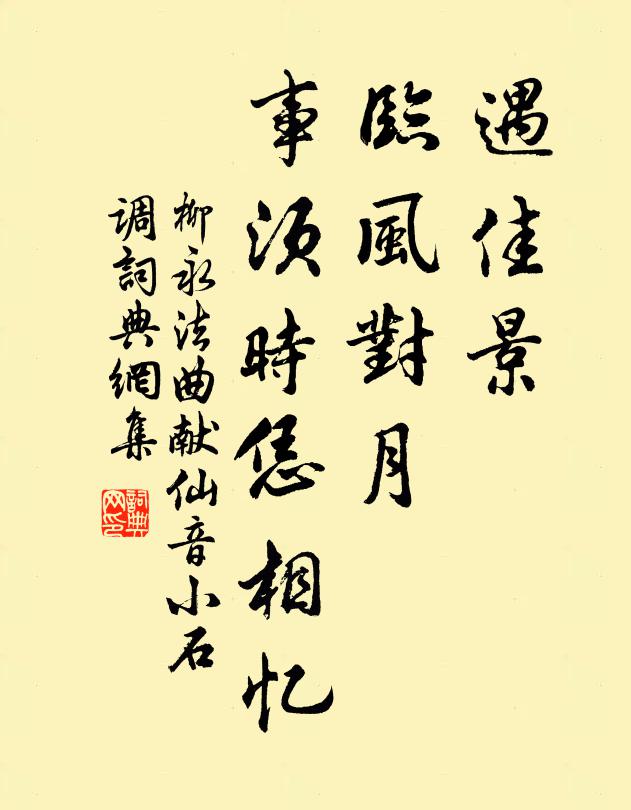 遇佳景
臨風對月
事须時恁相忆
柳永法曲献仙音小石
调詞典網集
詞典
网印